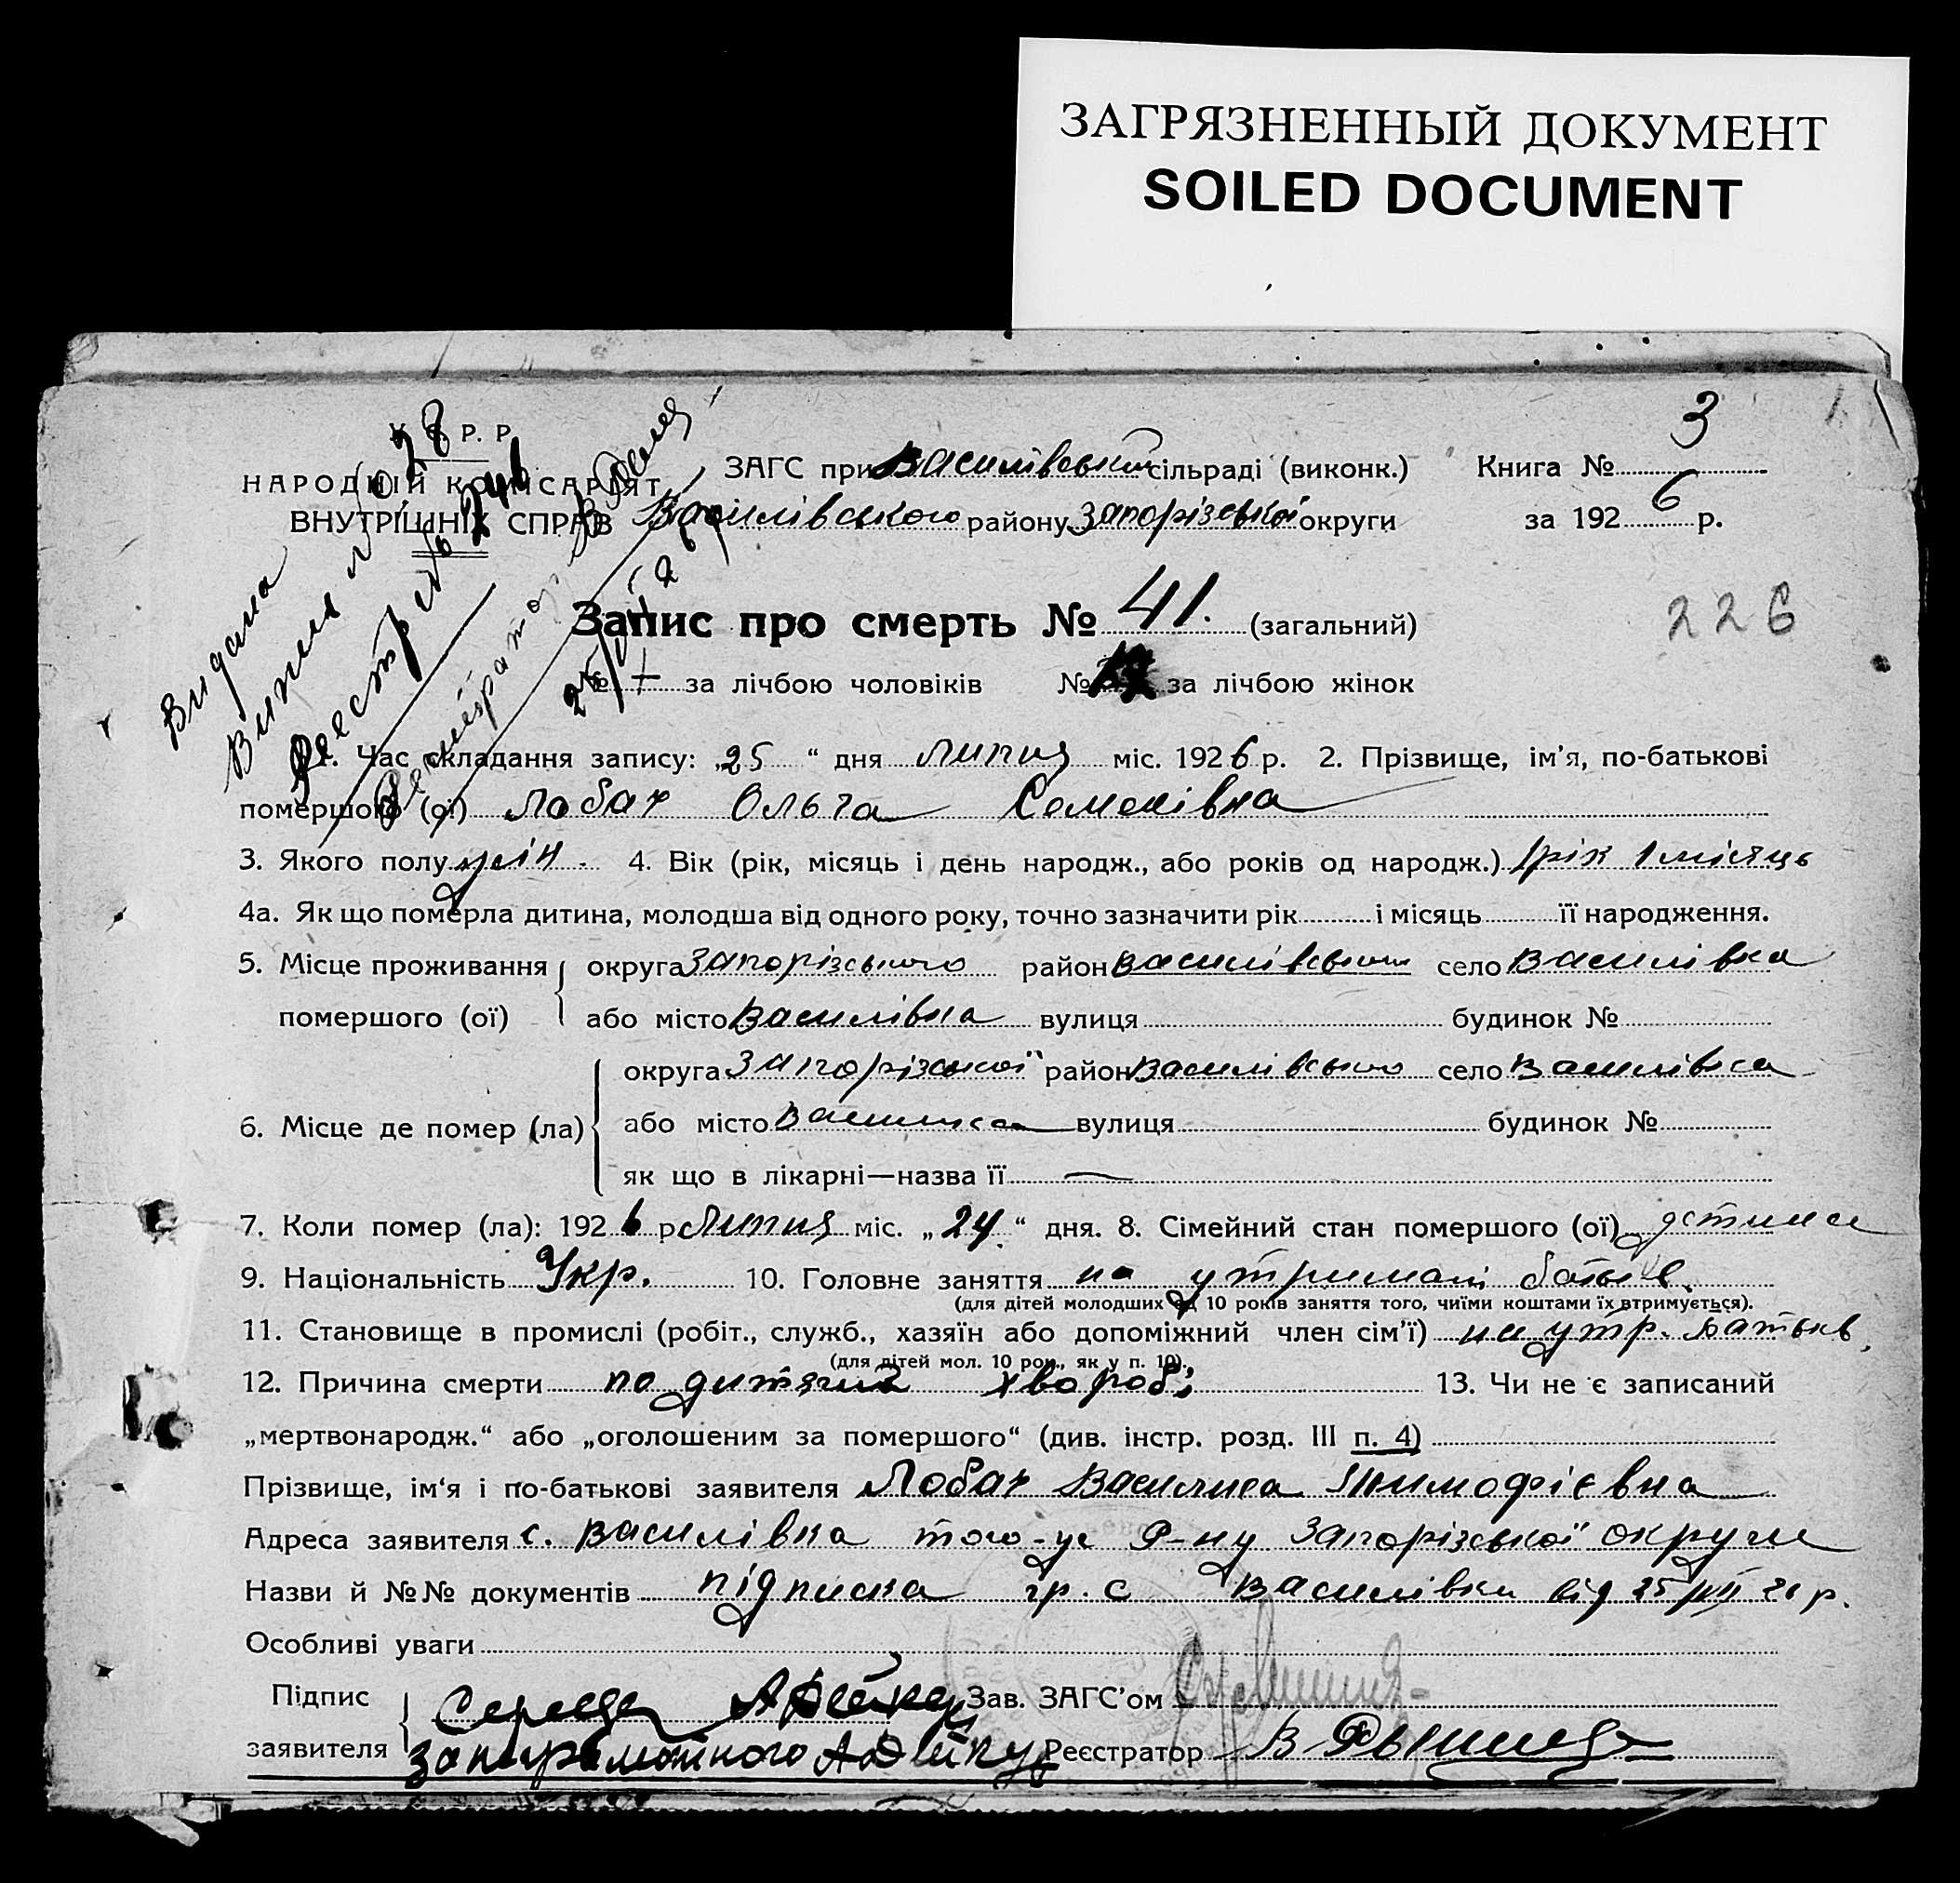 ЗАГРЯЗНЕННЫЙ ДОКУМЕНТ
SOILED DOCUMENT
3
У. С. Р. Р.
НАРОДНІЙ КОМІСАРІЯТ
ВНУТРІШНІХ СПРАВ
ЗАГС при Василівській сільраді (виконк.) Книга №
Василівського району Запорізської округи за 1926 р.
Видана
Реєстр № 241
Запис про смерть № 41. (загальний)
226
№ за лічбою чоловіків № за лічбою жінок
1. Час складання запису: „25“ дня липня міс. 1926 р. 2. Прізвище, ім’я, по-батькові
помершого (ої) Лобач Ольга Семенівна
3. Якого полу жін. 4. Вік (рік, місяць і день народж., або років од народж.) 1 рік 1 місяць
4а. Як що померла дитина, молодша від одного року, точно зазначити рік і місяць її народження.
5. Місце проживання округа Запорізського район Василівського село Василівка
помершого (ої) або місто Василівка вулиця будинок №
округа Запорізської район Василівського село Василівка
6. Місце де помер (ла) або місто вулиця будинок №
як що в лікарні—назва її —
7. Коли помер (ла): 1926 р. Липня міс. „24“ дня. 8. Сімейний стан помершого (ої) дитина
9. Національність Укр. 10. Головне заняття на утримані батьків
(для дітей молодших од 10 років заняття того, чиїми коштами їх втримується).
11. Становище в промислі (робіт., служб., хазяїн або допоміжний член сім’ї) на утр. батьків.
(для дітей мол. 10 рок., як у п. 10).
12. Причина смерти по дитячій хворобі 13. Чи не є записаний
„мертвонародж.“ або „оголошеним за помершого“ (див. інстр. розд. III п. 4)
Прізвище, ім‘я і по-батькові заявителя Лобач Василиса Тимофієвна
Адреса заявителя с. Василівка того-ж Р-ну Запорізської округи
Назви й №№ документів підписка гр. с Василівки від 25/VII 26 р.
Особливі уваги
Підпис Середа Зав. ЗАГС’ом
заявителя Реєстратор В